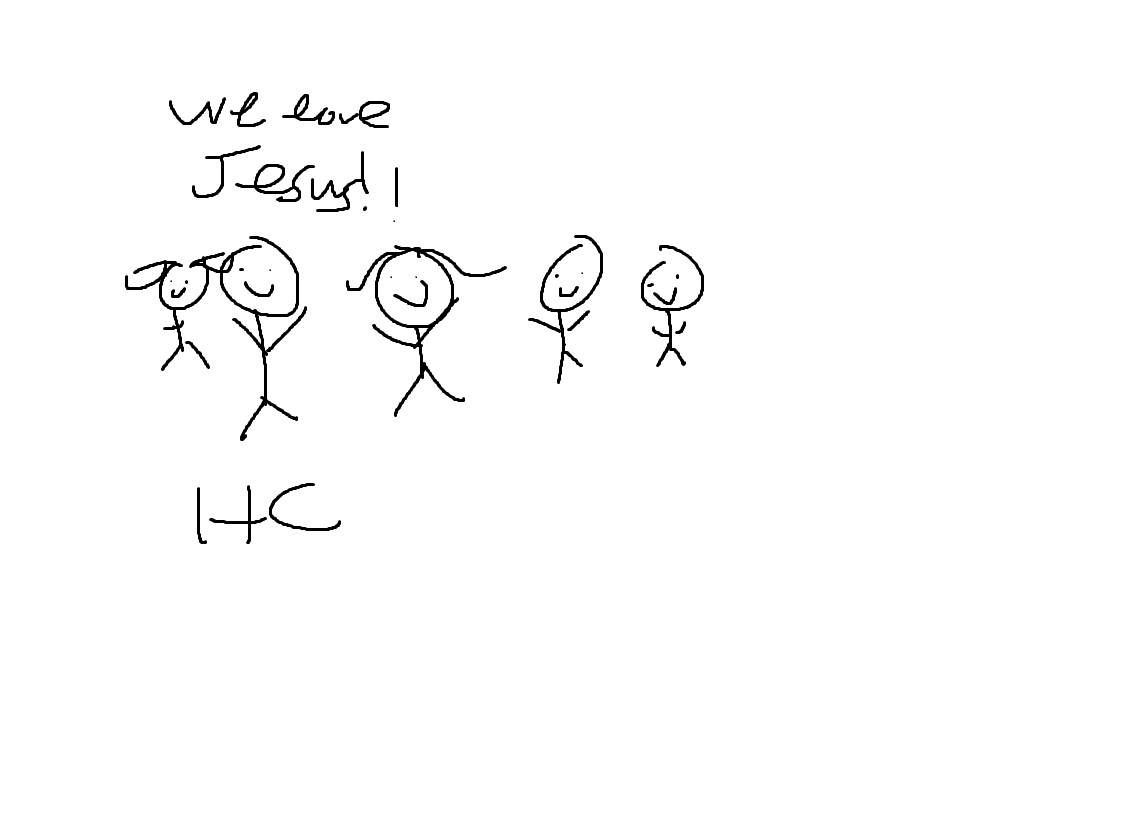 We love
Jesus!!
HC